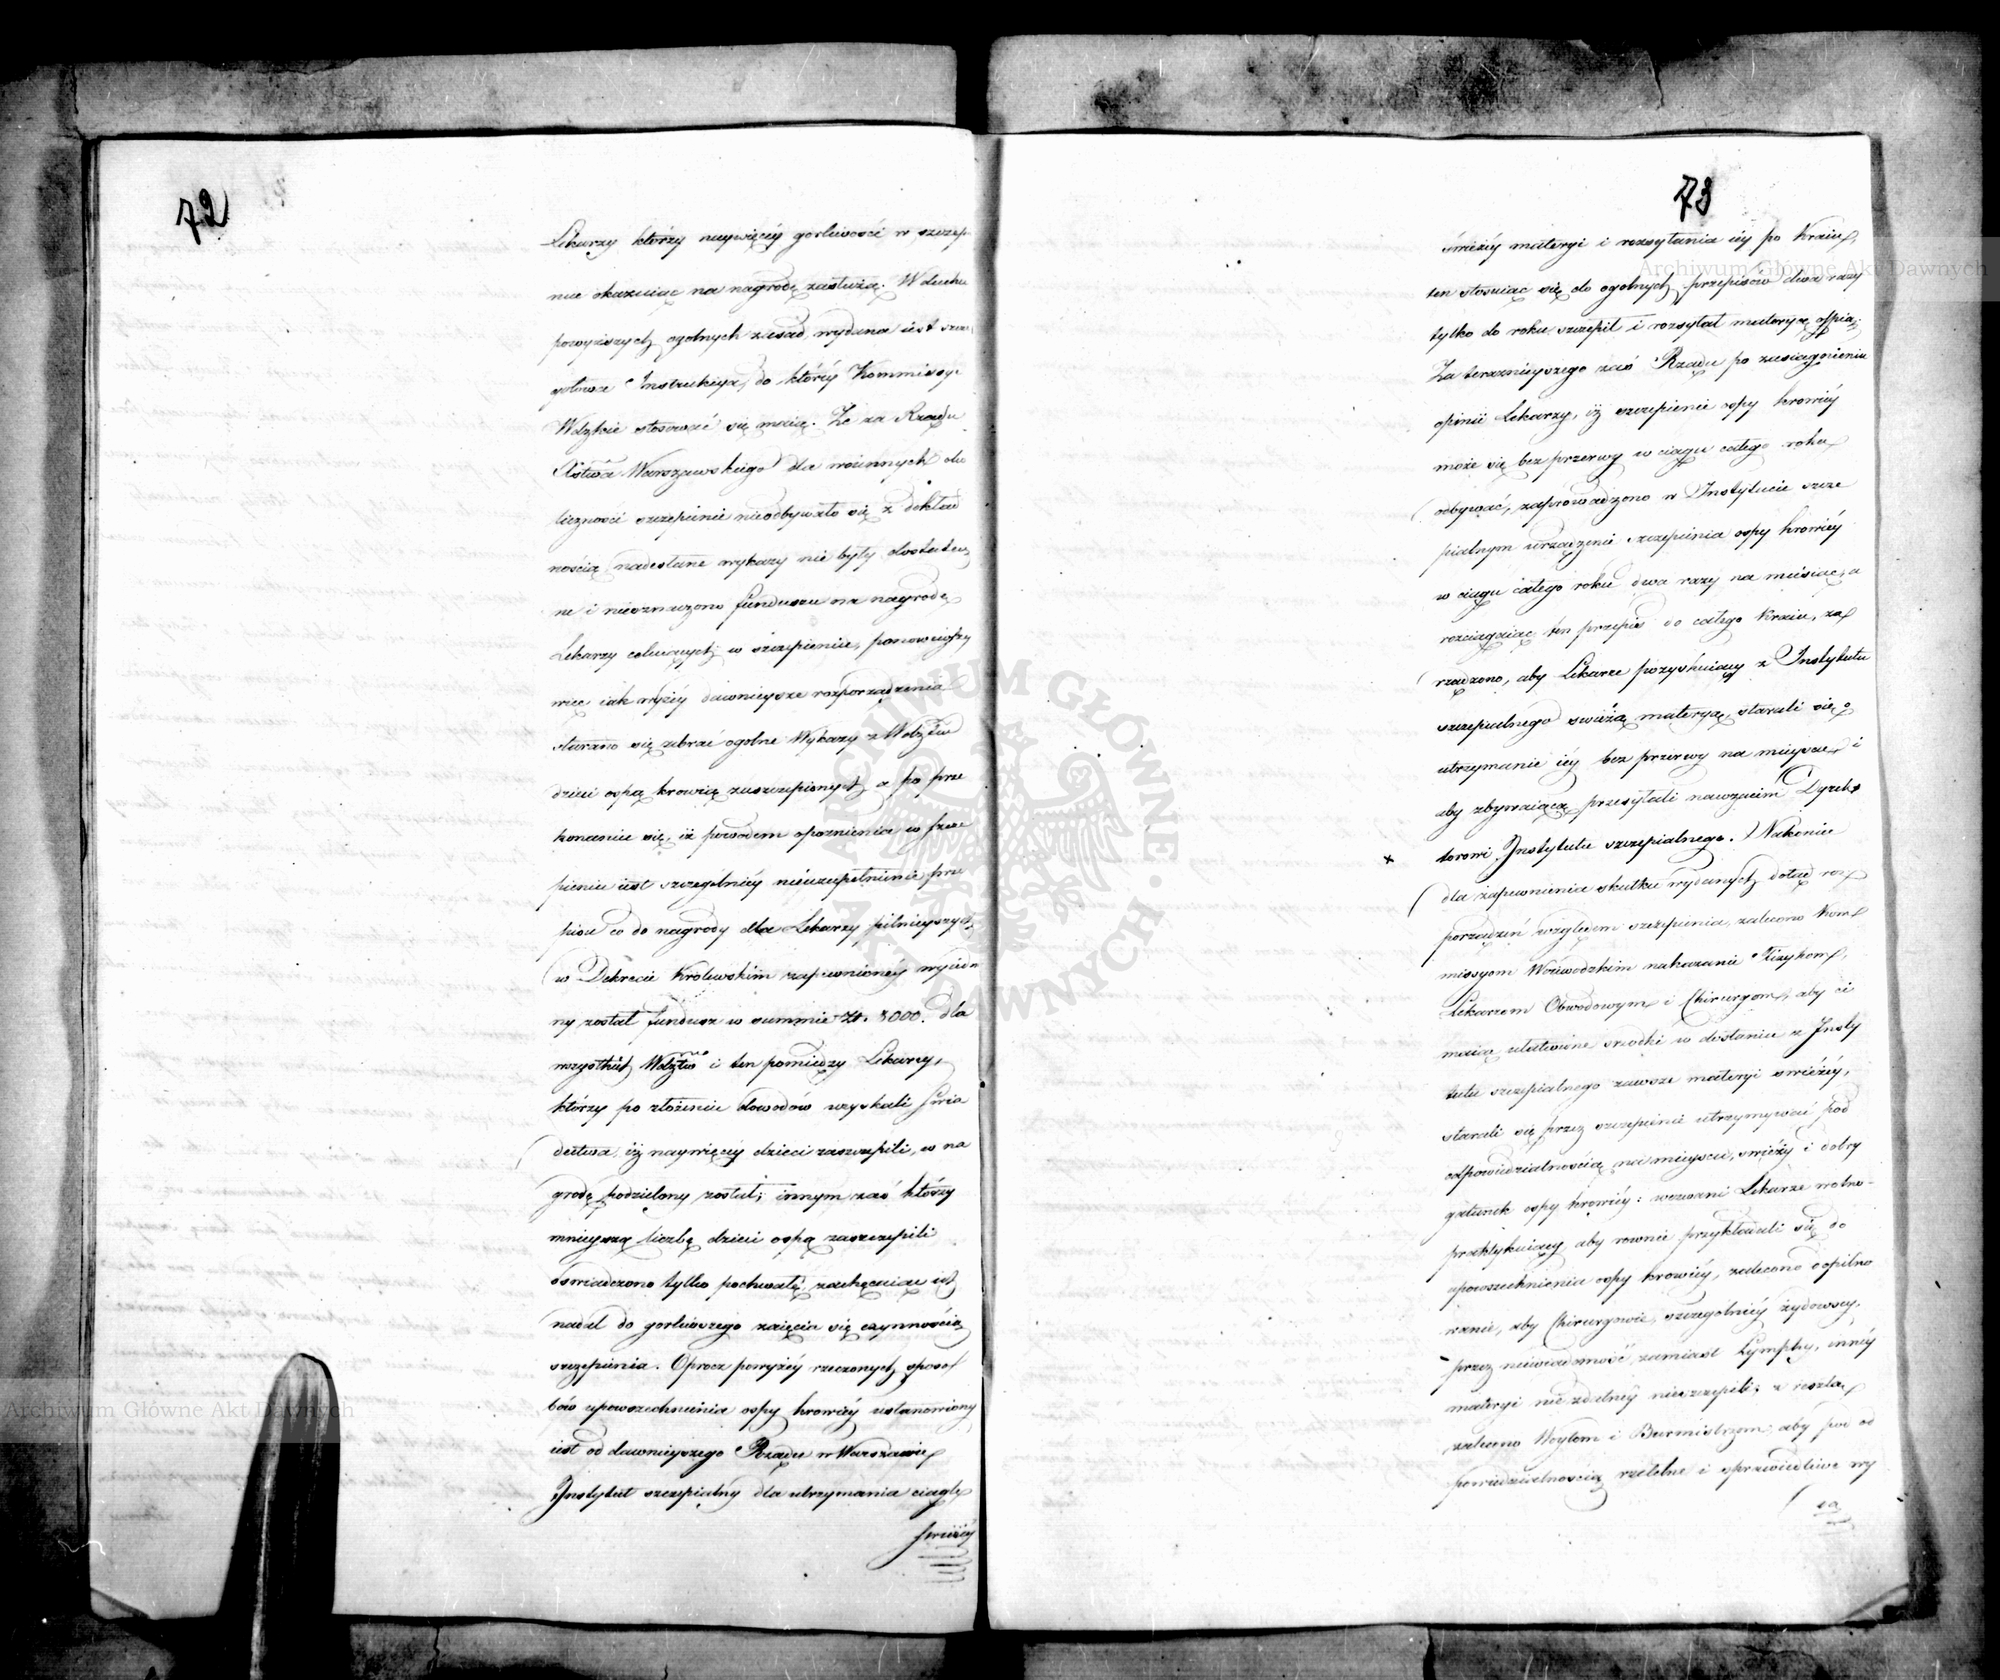 72
Lekarzy którzy naywięcéy gorliwości w szczepie
nia okazuiąc na nagrodę zasłużą. W duchu
powyższych ogolnych zasad, wydana iest szcze
gołowa Instrukcya, do któréy Kommissye
Wdzkie stosować się maią. Że za Rządu
Xięstwa Warszawskiego dla woiennych oko
liczności szczepienie nieodbywało się z dokład
nością, nadesłane wykazy nie były dostatecz
ne i nieoznaczono funduszu na nagrodę
Lekarzy celuiących w szczepieniu, ponowiwszy
więc iak wyżéy dawnieysze rozporządzenia
starano się zebrać ogolne Wykazy z Wdztw
dzieci ospą krowią zaszczepionych a po prze
konaniu się, iż powodem opoznienia w szcze
pieniu iest szczegolniéy nieuzupełnienie prze
pisu co do nagrody dla Lekarzy pilnieyszych
w Dekrecie Krolewskim zapewnionéy wyiedna
ny został fundusz w summie Zł. 8000. dla
wszystkich Wdztw i ten pomiędzy Lekarzy,
którzy po złożeniu dowodów uzyskali świa
dectwa, iż naywięcéy dzieci zaszczepili, w na
grodę podzielony został; innym zaś którzy
mnieyszą liczbę dzieci ospą zaszczepili
oświadczono tylko pochwałę, zachęcaiąc ich
nadal do gorliwszego zaięcia się czynnością
szczepienia. Oprocz powyżéy rzeczonych sposo
bów upowszechnienia ospy krowiéy ustanowiony
iest od dawnieyszego Rządu w Warszawie
Instytut szczepialny dla utrzymania ciągle
świeżéy
73
świeżéy materyi i rozsyłania iéy po Kraiu,
ten stosuiąc się do ogolnych przepisów dwa razy
tylko do roku szczepił i rozsyłał materyą ospią;
Za teraznieyszego zaś Rządu po zasiągnieniu
opinii Lekarzy, iż szczepienie ospy krowiéy
może się bez przerwy w ciągu całego roku
odbywać, zaprowadzono w Instytucie szcze
pialnym urządzenie szczepienia ospy krowiéy
w ciągu całego roku dwa razy na miesiąc, a
rozciągaiąc ten przepis do całego Kraiu, za
rządzono, aby Lekarze pozyskuiący z Instytutu
szczepialnego świeżą materyą, starali się o
utrzymanie iéy bez przerwy na mieyscu i
aby zbywaiącą przesyłali nawzaiem Dyrek
torowi Instytutu szczepialnego. Nakoniec
dla zapewnienia skutku wydanych dotąd roz
porządzeń względem szczepienia, zalecono Kom
missyom Woiewodzkim nakazanie Fizykom,
Lekarzom Obwodowym i Chirurgom, aby ci
maiąc ułatwione srodki w dostaniu z Insty
tutu szczepialnego zawsze materyi świeżéy,
starali się przez szczepienie utrzymywać pod
odpowiedzialnością na mieyscu, świeży i dobry
gatunek ospy krowiéy: wezwani Lekarze wolno-
praktykuiący aby rownie przykładali się do
upowszechnienia ospy krowiéy, zalecono dopilno
wanie, aby Chirurgowie, szczególniéy żydowscy,
przez niewiadomość, zamiast Lymphy, innéy
materyi nie zdatnéy nieszczepili; z resztą
zalecono Woytom i Burmistrzom aby pod od
powiedzialnością rzetelne i sprawiedliwe wy
ka